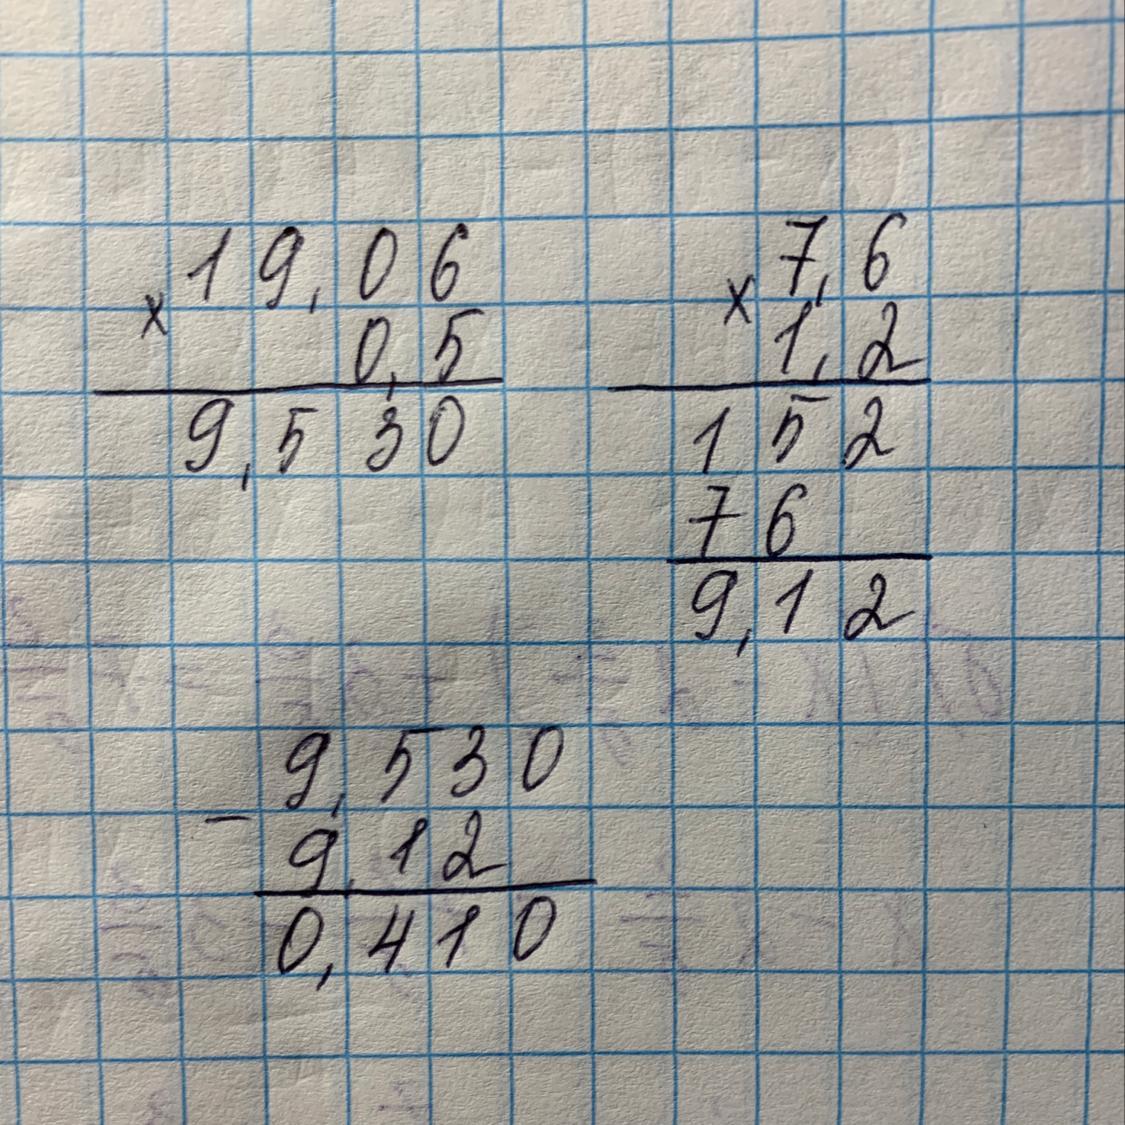 19,06
×
0,5
9,530
7,6
×
1,2
152
76
9,12
9,530
−
9,12
0,410